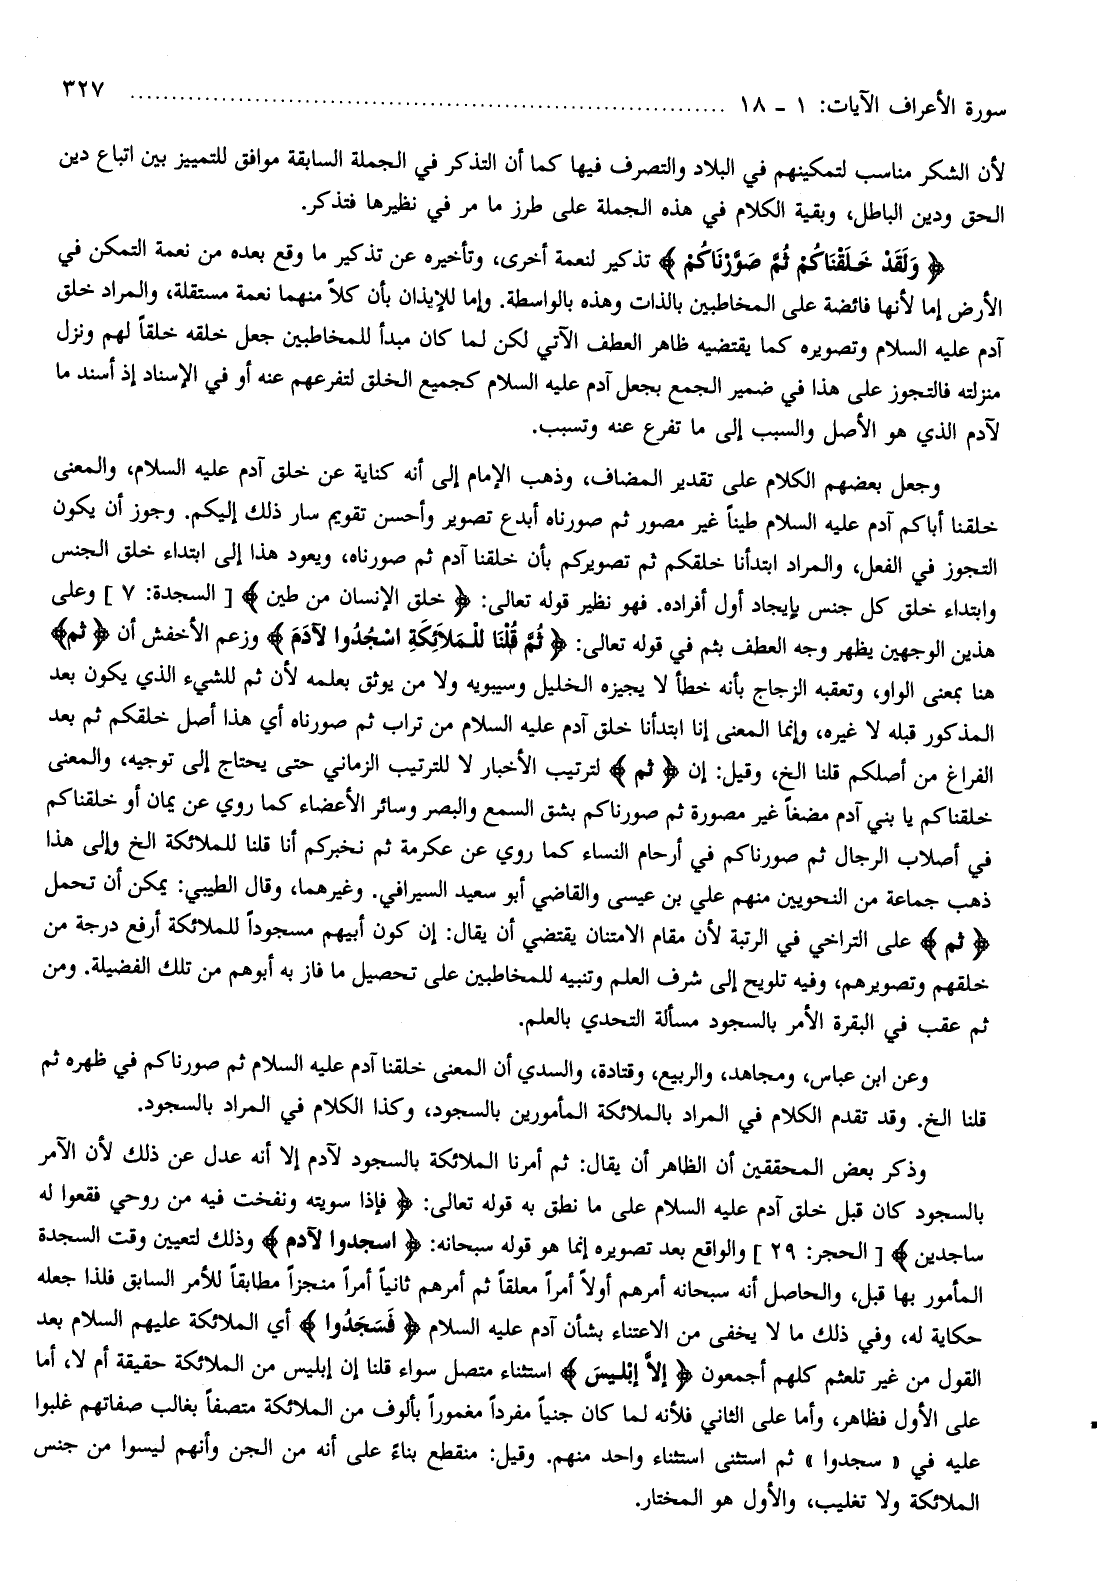 سورة الأعراف الآيات: ١ - ١٨ ........................................................................ ٣٢٧
لأن الشكر مناسب لتمكينهم في البلاد والتصرف فيها كما أن التذكر في الجملة السابقة موافق للتمييز بين اتباع دين
الحق ودين الباطل، وبقية الكلام في هذه الجملة على طرز ما مر في نظيرها فتذكر.
﴿ وَلَقَدْ خَلَقْنَاكُمْ ثُمَّ صَوَّرْنَاكُمْ ﴾ تذكير لنعمة أخرى، وتأخيره عن تذكير ما وقع بعده من نعمة التمكن في
الأرض إما لأنها فائضة على المخاطبين بالذات وهذه بالواسطة. وإما للإيذان بأن كلاً منهما نعمة مستقلة، والمراد خلق
آدم عليه السلام وتصويره كما يقتضيه ظاهر العطف الآتي لكن لما كان مبدأ للمخاطبين جعل خلقه خلقاً لهم ونزل
منزلته فالتجوز على هذا في ضمير الجمع بجعل آدم عليه السلام كجميع الخلق لتفرعهم عنه أو في الإسناد إذ أسند ما
لآدم الذي هو الأصل والسبب إلى ما تفرع عنه وتسبب.
وجعل بعضهم الكلام على تقدير المضاف، وذهب الإمام إلى أنه كناية عن خلق آدم عليه السلام، والمعنى
خلقنا أباكم آدم عليه السلام طيناً غير مصور ثم صورناه أبدع تصوير وأحسن تقويم سار ذلك إليكم. وجوز أن يكون
التجوز في الفعل، والمراد ابتدأنا خلقكم ثم تصويركم بأن خلقنا آدم ثم صورناه، ويعود هذا إلى ابتداء خلق الجنس
وابتداء خلق كل جنس بإيجاد أول أفراده. فهو نظير قوله تعالى: ﴿ خلق الإنسان من طين ﴾ [ السجدة: ٧ ] وعلى
هذين الوجهين يظهر وجه العطف بثم في قوله تعالى: ﴿ ثُمَّ قُلْنَا لِلْمَلَائِكَةِ اسْجُدُوا لآدَمَ ﴾ وزعم الأخفش أن ﴿ ثم﴾
هنا بمعنى الواو، وتعقبه الزجاج بأنه خطأ لا يجيزه الخليل وسيبويه ولا من يوثق بعلمه لأن ثم للشيء الذي يكون بعد
المذكور قبله لا غيره، وإنما المعنى إنا ابتدأنا خلق آدم عليه السلام من تراب ثم صورناه أي هذا أصل خلقكم ثم بعد
الفراغ من أصلكم قلنا الخ، وقيل: إن ﴿ ثم ﴾ لترتيب الأخبار لا للترتيب الزماني حتى يحتاج إلى توجيه، والمعنى
خلقناكم يا بني آدم مضغاً غير مصورة ثم صورناكم بشق السمع والبصر وسائر الأعضاء كما روي عن يمان أو خلقناكم
في أصلاب الرجال ثم صورناكم في أرحام النساء كما روي عن عكرمة ثم نخبركم أنا قلنا للملائكة الخ وإلى هذا
ذهب جماعة من النحويين منهم علي بن عيسى والقاضي أبو سعيد السيرافي. وغيرهما، وقال الطيبي: يمكن أن تحمل
﴿ ثم ﴾ على التراخي في الرتبة لأن مقام الامتنان يقتضي أن يقال: إن كون أبيهم مسجوداً للملائكة أرفع درجة من
خلقهم وتصويرهم، وفيه تلويح إلى شرف العلم وتنبيه للمخاطبين على تحصيل ما فاز به أبوهم من تلك الفضيلة. ومن
ثم عقب في البقرة الأمر بالسجود مسألة التحدي بالعلم.
وعن ابن عباس، ومجاهد، والربيع، وقتادة، والسدي أن المعنى خلقنا آدم عليه السلام ثم صورناكم في ظهره ثم
قلنا الخ. وقد تقدم الكلام في المراد بالملائكة المأمورين بالسجود، وكذا الكلام في المراد بالسجود.
وذكر بعض المحققين أن الظاهر أن يقال: ثم أمرنا الملائكة بالسجود لآدم إلا أنه عدل عن ذلك لأن الآمر
بالسجود كان قبل خلق آدم عليه السلام على ما نطق به قوله تعالى: ﴿ فإذا سويته ونفخت فيه من روحي فقعوا له
ساجدين ﴾ [ الحجر: ٢٩ ] والواقع بعد تصويره إنما هو قوله سبحانه: ﴿ اسجدوا لآدم ﴾ وذلك لتعيين وقت السجدة
المأمور بها قبل، والحاصل أنه سبحانه أمرهم أولاً أمراً معلقاً ثم أمرهم ثانياً أمراً منجزاً مطابقاً للأمر السابق فلذا جعله
حكاية له، وفي ذلك ما لا يخفى من الاعتناء بشأن آدم عليه السلام ﴿ فَسَجَدُوا ﴾ أي الملائكة عليهم السلام بعد
القول من غير تلعثم كلهم أجمعون ﴿ إلاَّ إبْلِيسَ ﴾ استثناء متصل سواء قلنا إن إبليس من الملائكة حقيقة أم لا، أما
على الأول فظاهر، وأما على الثاني فلأنه لما كان جنياً مفرداً مغموراً بألوف من الملائكة متصفاً بغالب صفاتهم غلبوا
عليه في « سجدوا » ثم استثنى استثناء واحد منهم. وقيل: منقطع بناءً على أنه من الجن وأنهم ليسوا من جنس
الملائكة ولا تغليب، والأول هو المختار.